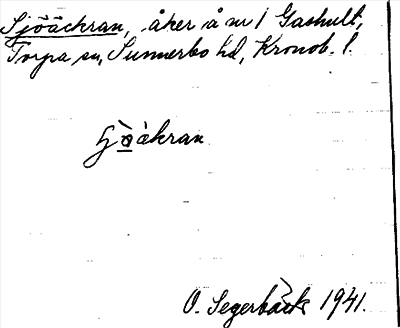 Sjöäckran, åker å nr 1 Gashult,
Torpa sn, Sunnerbo hd, Kronob. l.
O. Segerbäck 1941.